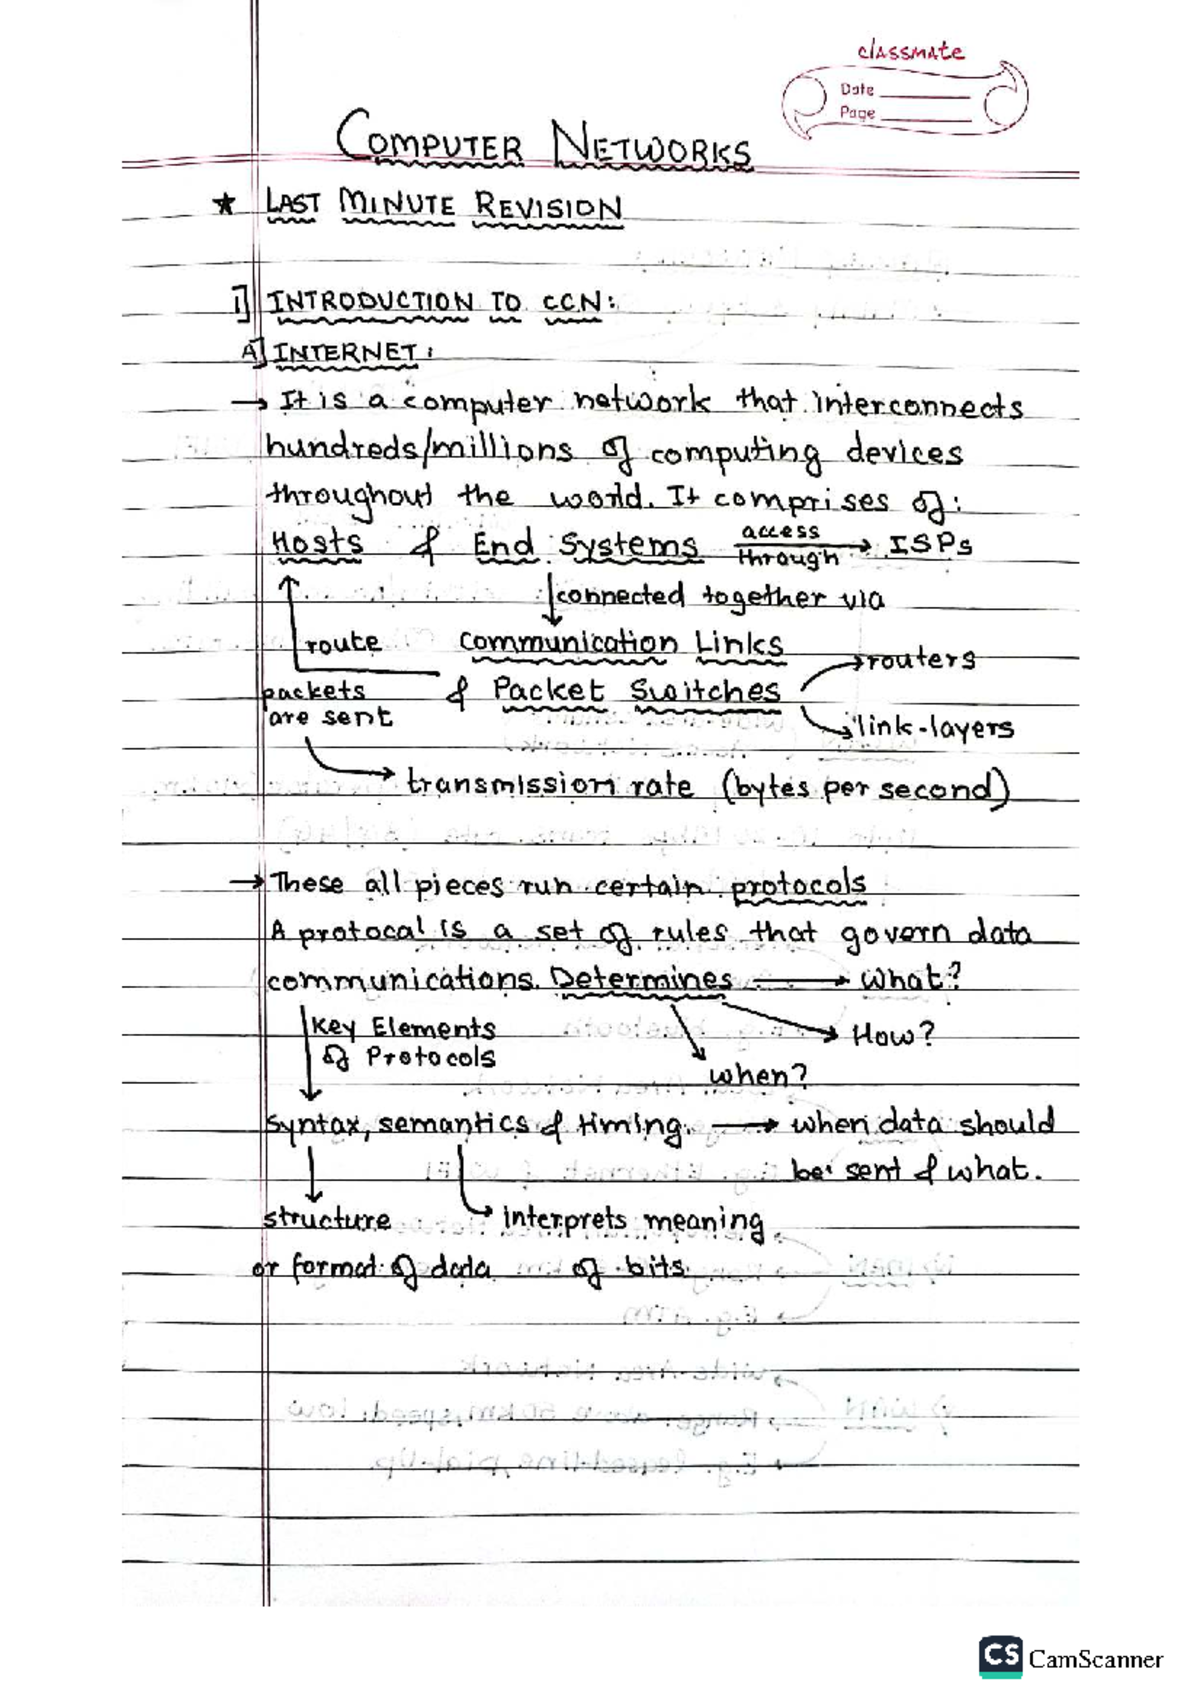 classmate
Date
Page
COMPUTER NETWORKS
★ LAST MINUTE REVISION
1] INTRODUCTION TO CCN:
A] INTERNET:
→ It is a computer network that interconnects
hundreds/millions of computing devices
throughout the world. It comprises of:
Hosts & End Systems access through → ISPs
connected together via
route Communication Links
→ routers
packets & Packet Switches
are sent → link-layers
→ transmission rate (bytes per second)
→ These all pieces run certain protocols
A protocal is a set of rules that govern data
communications. Determines → What?
Key Elements → How?
of Protocols
when?
syntax, semantics & timing. → when data should
be sent & what.
structure → interprets meaning
or format of data of bits.
CS CamScanner